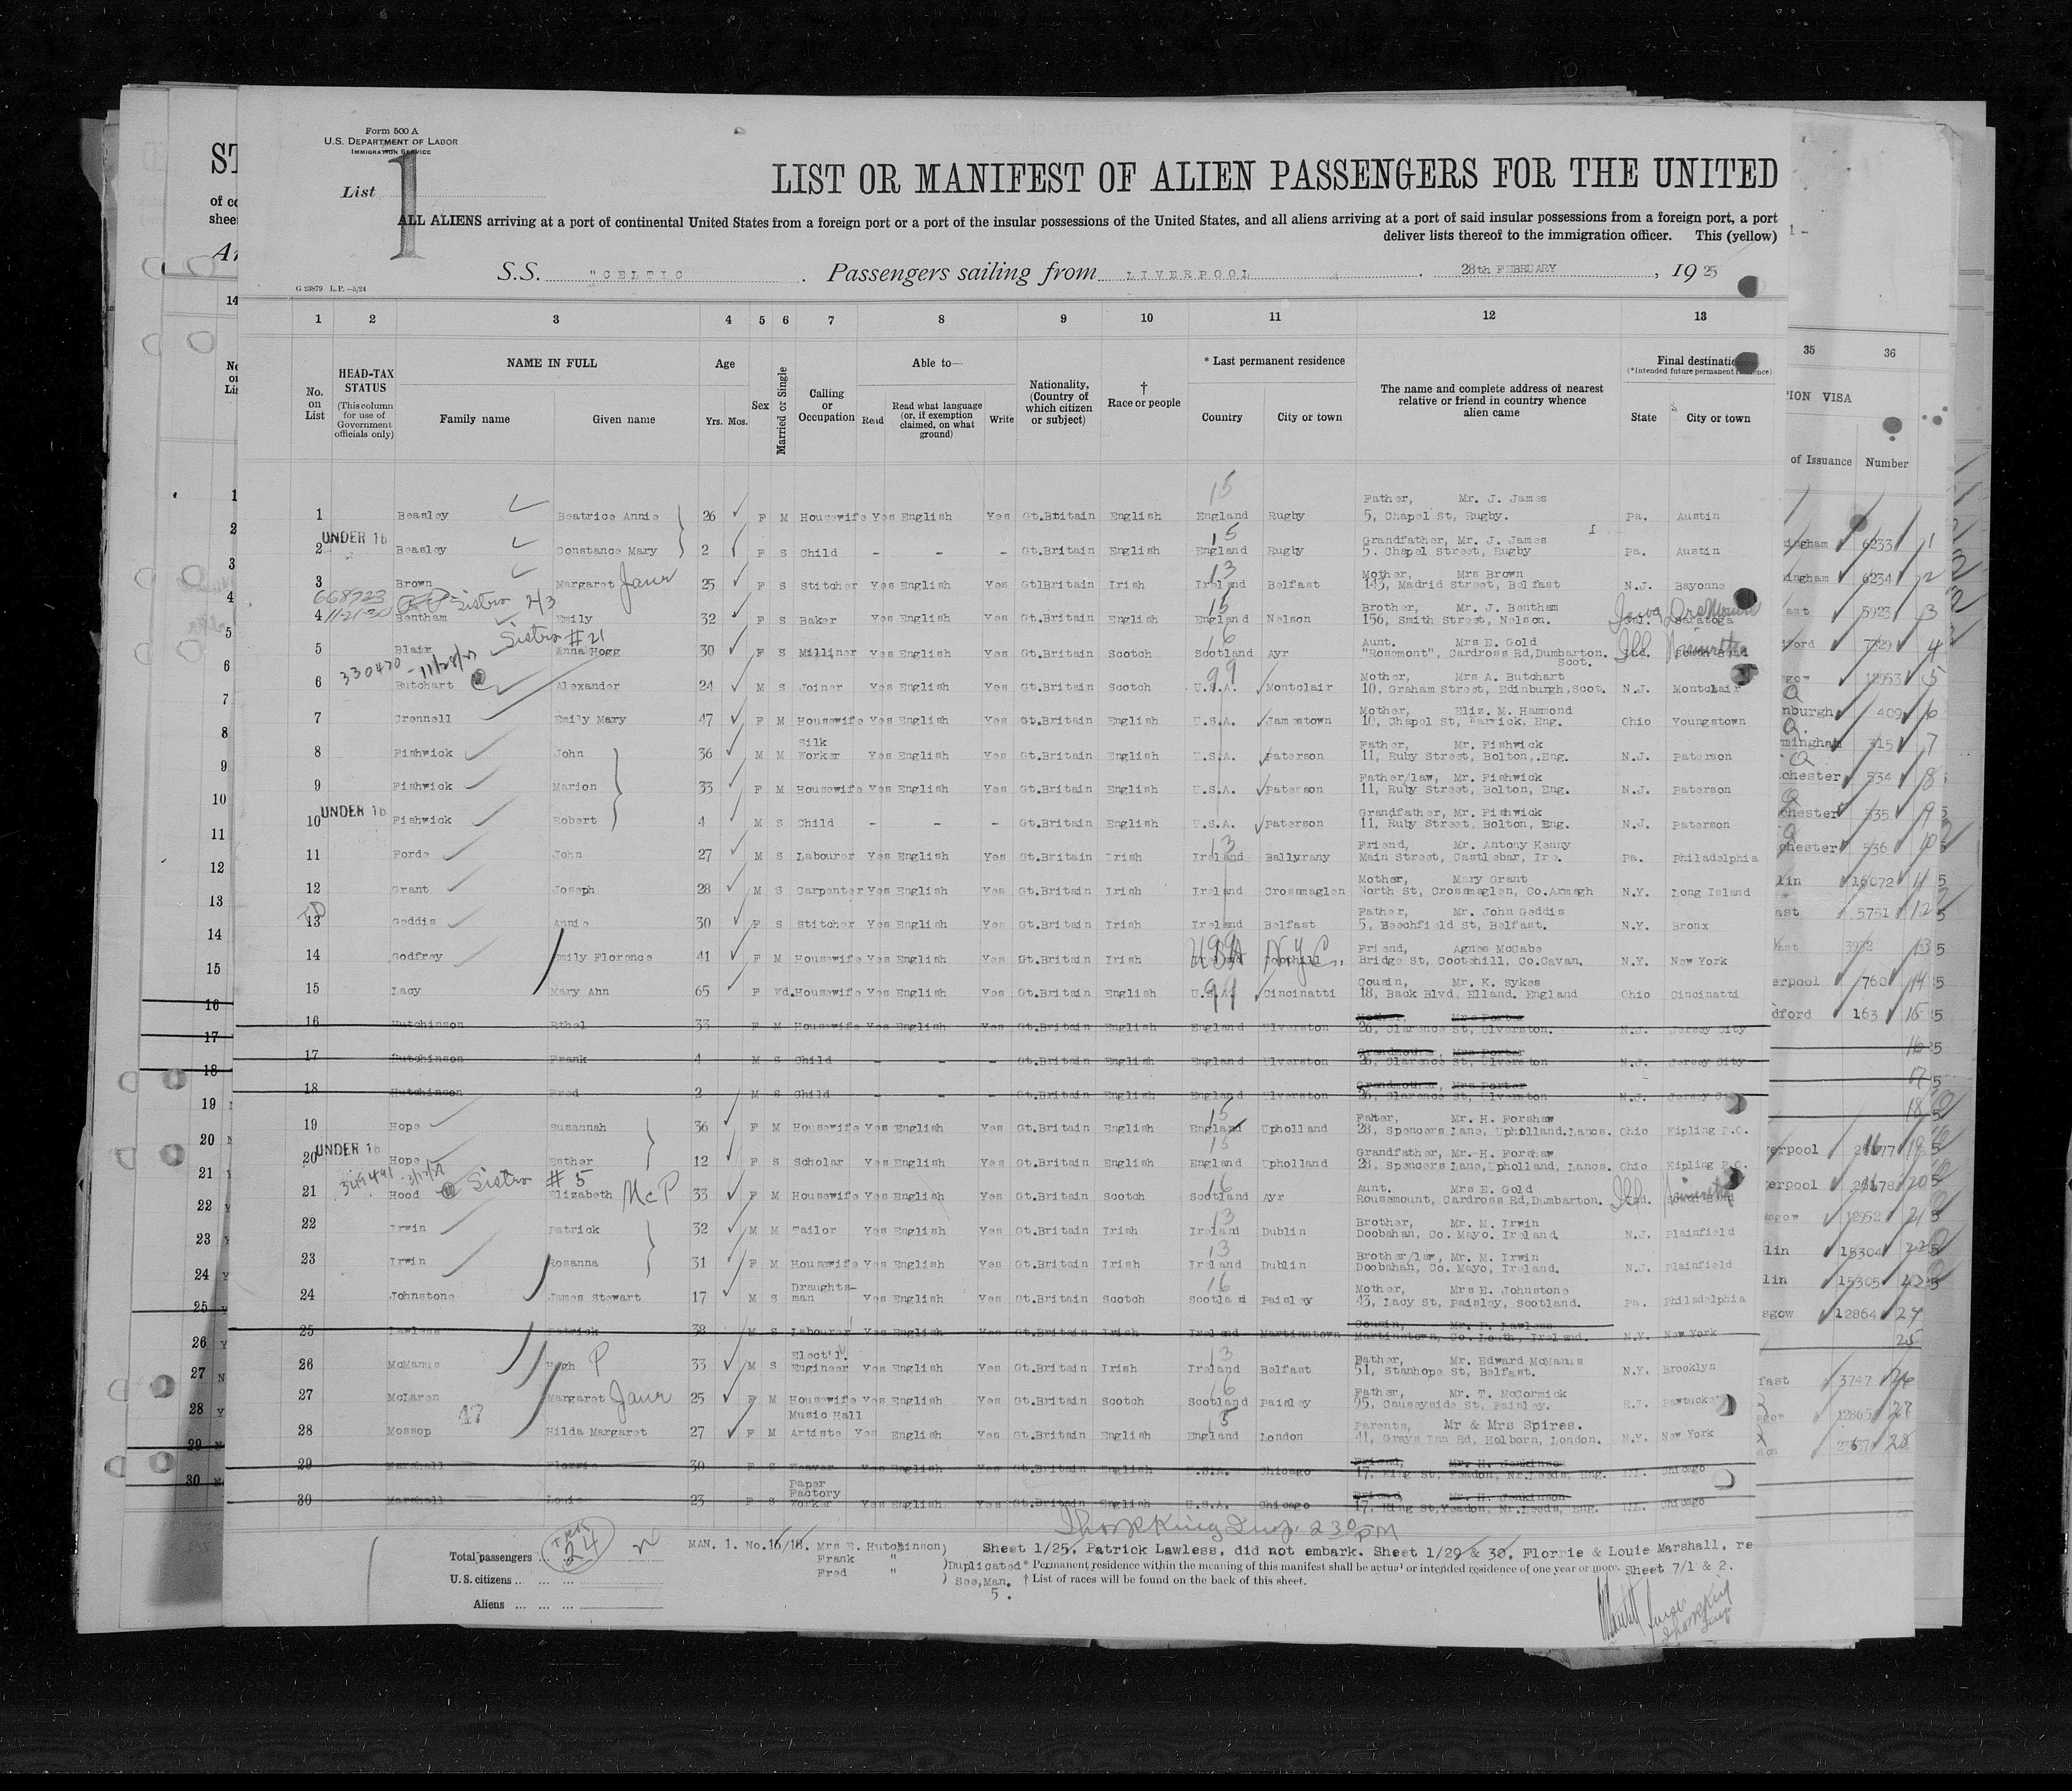 Form 500 A
U.S. DEPARTMENT OF LABOR
IMMIGRATION SERVICE
List 1
LIST OR MANIFEST OF ALIEN PASSENGERS FOR THE UNITED
ALL ALIENS arriving at a port of continental United States from a foreign port or a port of the insular possessions of the United States, and all aliens arriving at a port of said insular possessions from a foreign port, a port
deliver lists thereof to the immigration officer. This (yellow)
S.S. "CELTIC . Passengers sailing from LIVERPOOL . 28th FEBRUARY , 19 25
G 23879 L.P.—5/24
1 2 3 4 5 6 7 8 9 10 11 12 13
No. on List
HEAD-TAX STATUS (This column for use of Government officials only)
NAME IN FULL
Family name Given name
Age
Yrs. Mos.
Sex
Married or Single
Calling or Occupation
Able to—
Read Read what language (or, if exemption claimed, on what ground) Write
Nationality, (Country of which citizen or subject)
† Race or people
* Last permanent residence
Country City or town
The name and complete address of nearest relative or friend in country whence alien came
Final destination
(*Intended future permanent residence)
State City or town
35 36
ION VISA
of Issuance Number
15 Father, Mr. J. James
1 Beasley Beatrice Annie 26 F M Housewife Yes English Yes Gt.Britain English England Rugby 5, Chapel St, Rugby. Pa. Austin
UNDER 16 15 Grandfather, Mr. J. James
2 Beasley Constance Mary 2 F S Child - - - Gt.Britain English England Rugby 5. Chapel Street, Rugby Pa. Austin
13 Mother, Mrs Brown
3 Brown Margaret Jane 25 F S Stitcher Yes English Yes GtlBritain Irish Ireland Belfast 143, Madrid Street, Belfast N.J. Bayonne
668723 Sister 15 Brother, Mr. J. Bentham
4 Bentham Emily 32 F S Baker Yes English Yes Gt.Britain English England Nelson 156, Smith Street, Nelson. Saratoga
Sister #21 16 Aunt. Mrs E. Gold
5 Blair Anna Hogg 30 F S Milliner Yes English Yes Gt.Britain Scotch Scotland Ayr "Rosemont", Cardross Rd,Dumbarton. Ill Ind. South Bend
Scot.
330470 -11/28/27 99 Mother, Mrs A. Butchart
6 Butchart Alexander 24 M S Joiner Yes English Yes Gt.Britain Scotch U.S.A. Montclair 10, Graham Street, Edinburgh,Scot. N.J. Montclair
Mother, Eliz. M. Hammond
7 Crennell Emily Mary 47 F M Housewife Yes English Yes Gt.Britain English U.S.A. Jamestown 10, Chapel St, Warwick, Eng. Ohio Youngstown
Silk Father, Mr. Fishwick
8 Fishwick John 36 M M Worker Yes English Yes Gt.Britain English U.S.A. Paterson 11, Ruby Street, Bolton,.Eng. N.J. Paterson
Father/law, Mr. Fishwick
9 Fishwick Marion 33 F M Housewife Yes English Yes Gt.Britain English U.S.A. Paterson 11, Ruby Street, Bolton, Eng. N.J. Paterson
UNDER 16 Grandfather, Mr. Fishwick
10 Fishwick Robert 4 M S Child - - - Gt.Britain English U.S.A. Paterson 11, Ruby Street, Bolton, Eng. N.J. Paterson
13 Friend, Mr. Antony Kenny
11 Forde John 27 M S Labourer Yes English Yes Gt.Britain Irish Ireland Ballyrany Main Street, Castlebar, Ire. Pa. Philadelphia
Mother, Mary Grant
12 Grant Joseph 28 M S Carpenter Yes English Yes Gt.Britain Irish Ireland Crossmaglen North St, Crossmaglen, Co.Armagh N.Y. Long Island
Father, Mr. John Geddis
13 Geddis Annie 30 F S Stitcher Yes English Yes Gt.Britain Irish Ireland Belfast 5, Beechfield St, Belfast. N.Y. Bronx
Friend, Agnes McCabe
14 Godfrey Emily Florence 41 F M Housewife Yes English Yes Gt.Britain Irish USA N.Y.C. Bridge St, Cootehill, Co.Cavan. N.Y. New York
99 Cousin, Mr. K. Sykes
15 Lacy Mary Ann 65 F Wd. Housewife Yes English Yes Gt.Britain English U.S.A. Cincinatti 18, Back Blvd, Elland. England Ohio Cincinatti
Mother, Mrs Porter
16 Hutchinson Ethel 33 F M Housewife Yes English Yes Gt.Britain English England Ulverston 26, Clarence St, Ulverston. N.J. Jersey City
Grandmother, Mrs Porter
17 Hutchinson Frank 4 M S Child - - - Gt.Britain English England Ulverston 26, Clarence St, Ulverston N.J. Jersey City
Grandmother, Mrs Porter
18 Hutchinson Fred 2 M S Child - - - Gt.Britain English England Ulverston 26, Clarence St, Ulverston N.J. Jersey City
15 Father, Mr. H. Forshaw
19 Hope Susannah 36 F M Housewife Yes English Yes Gt.Britain English England Upholland 28, Spencers Lane, Upholland.Lancs. Ohio Kipling P.O.
UNDER 16 15 Grandfather, Mr. H. Forshaw
20 Hope Esther 12 F S Scholar Yes English Yes Gt.Britain English England Upholland 28, Spencers Lane,Upholland, Lancs. Ohio Kipling P.O.
Sister #5 16 Aunt. Mrs E. Gold
21 Hood Elizabeth McP 33 F M Housewife Yes English Yes Gt.Britain Scotch Scotland Ayr Rousemount, Cardross Rd,Dumbarton. Ill Ind. South Bend
13 Brother, Mr. M. Irwin
22 Irwin Patrick 32 M M Tailor Yes English Yes Gt.Britain Irish Ireland Dublin Doobahan, Co. Mayo. Ireland N.J. Plainfield
13 Brother/law, Mr. M. Irwin
23 Irwin Rosanna 31 F M Housewife Yes English Yes Gt.Britain Irish Ireland Dublin Doobahan, Co. Mayo, Ireland. N.J. Plainfield
Draughts- 16 Mother, Mrs E. Johnstone
24 Johnstone James Stewart 17 M S man Yes English Yes Gt.Britain Scotch Scotland Paisley 43, Lacy St, Paisley, Scotland. Pa. Philadelphia
Cousin, Mr. P. Lawless
25 Lawless Patrick 38 M S Labourer Yes English Yes Gt.Britain Irish Ireland Martinstown Martinstown, Co. Louth, Ireland. N.Y. New York
Elect'l. 13 Father, Mr. Edward McManus
26 McManus Hugh P 33 M S Engineer Yes English Yes Gt.Britain Irish Ireland Belfast 51, Stanhope St, Belfast. N.Y. Brooklyn
16 Father, Mr. T. McCormick
27 McLaren Margaret Jane 25 F M Housewife Yes English Yes Gt.Britain Scotch Scotland Paisley 95, Causeyside St, Paisley. R.I. Pawtucket
47 Music Hall 15 Parents, Mr & Mrs Spires.
28 Mossop Hilda Margaret 27 F M Artiste Yes English Yes Gt.Britain English England London 41, Grays Inn Rd, Holborn, London. N.Y. New York
Friend, Mr. H. Jenkinson
29 Marshall Florrie 30 F S Weaver Yes English Yes Gt.Britain English U.S.A. Chicago 17, King St, Yeadon, Nr.Leeds, Eng. Ill. Chicago
Paper Factory Friend, Mr. H. Jenkinson
30 Marshall Louie 23 F S Worker Yes English Yes Gt.Britain English U.S.A. Chicago 17, King St,Yeadon, Nr.Leeds, Eng. Ill. Chicago
2 30 PM
Total passengers 24
U.S. citizens
Aliens
MAN. 1. No.16/18. Mrs E. Hutchinson)
Frank " ) Duplicated
Fred " ) See,Man. 5.
Sheet 1/25. Patrick Lawless, did not embark. Sheet 1/29 & 30. Florrie & Louie Marshall, re
* Permanent residence within the meaning of this manifest shall be actual or intended residence of one year or more. Sheet 7/1 & 2.
† List of races will be found on the back of this sheet.
ingham 6233 1
ingham 6234 2
ast 5923 3
ford 7829 4
gow 12953 5
nburgh 409 6
mingham 315 7
chester 534 8
chester 535 9
chester 536 10
lin 16072 11
ast 5751 12
fast 13
erpool 760 14
dford 163 15
16
17
18
erpool 19
erpool 20
sgow 12952 21
lin 15304 22
lin 15305 23
sgow 12864 24
25
fast 3747 26
sgow 12865 27
don 28